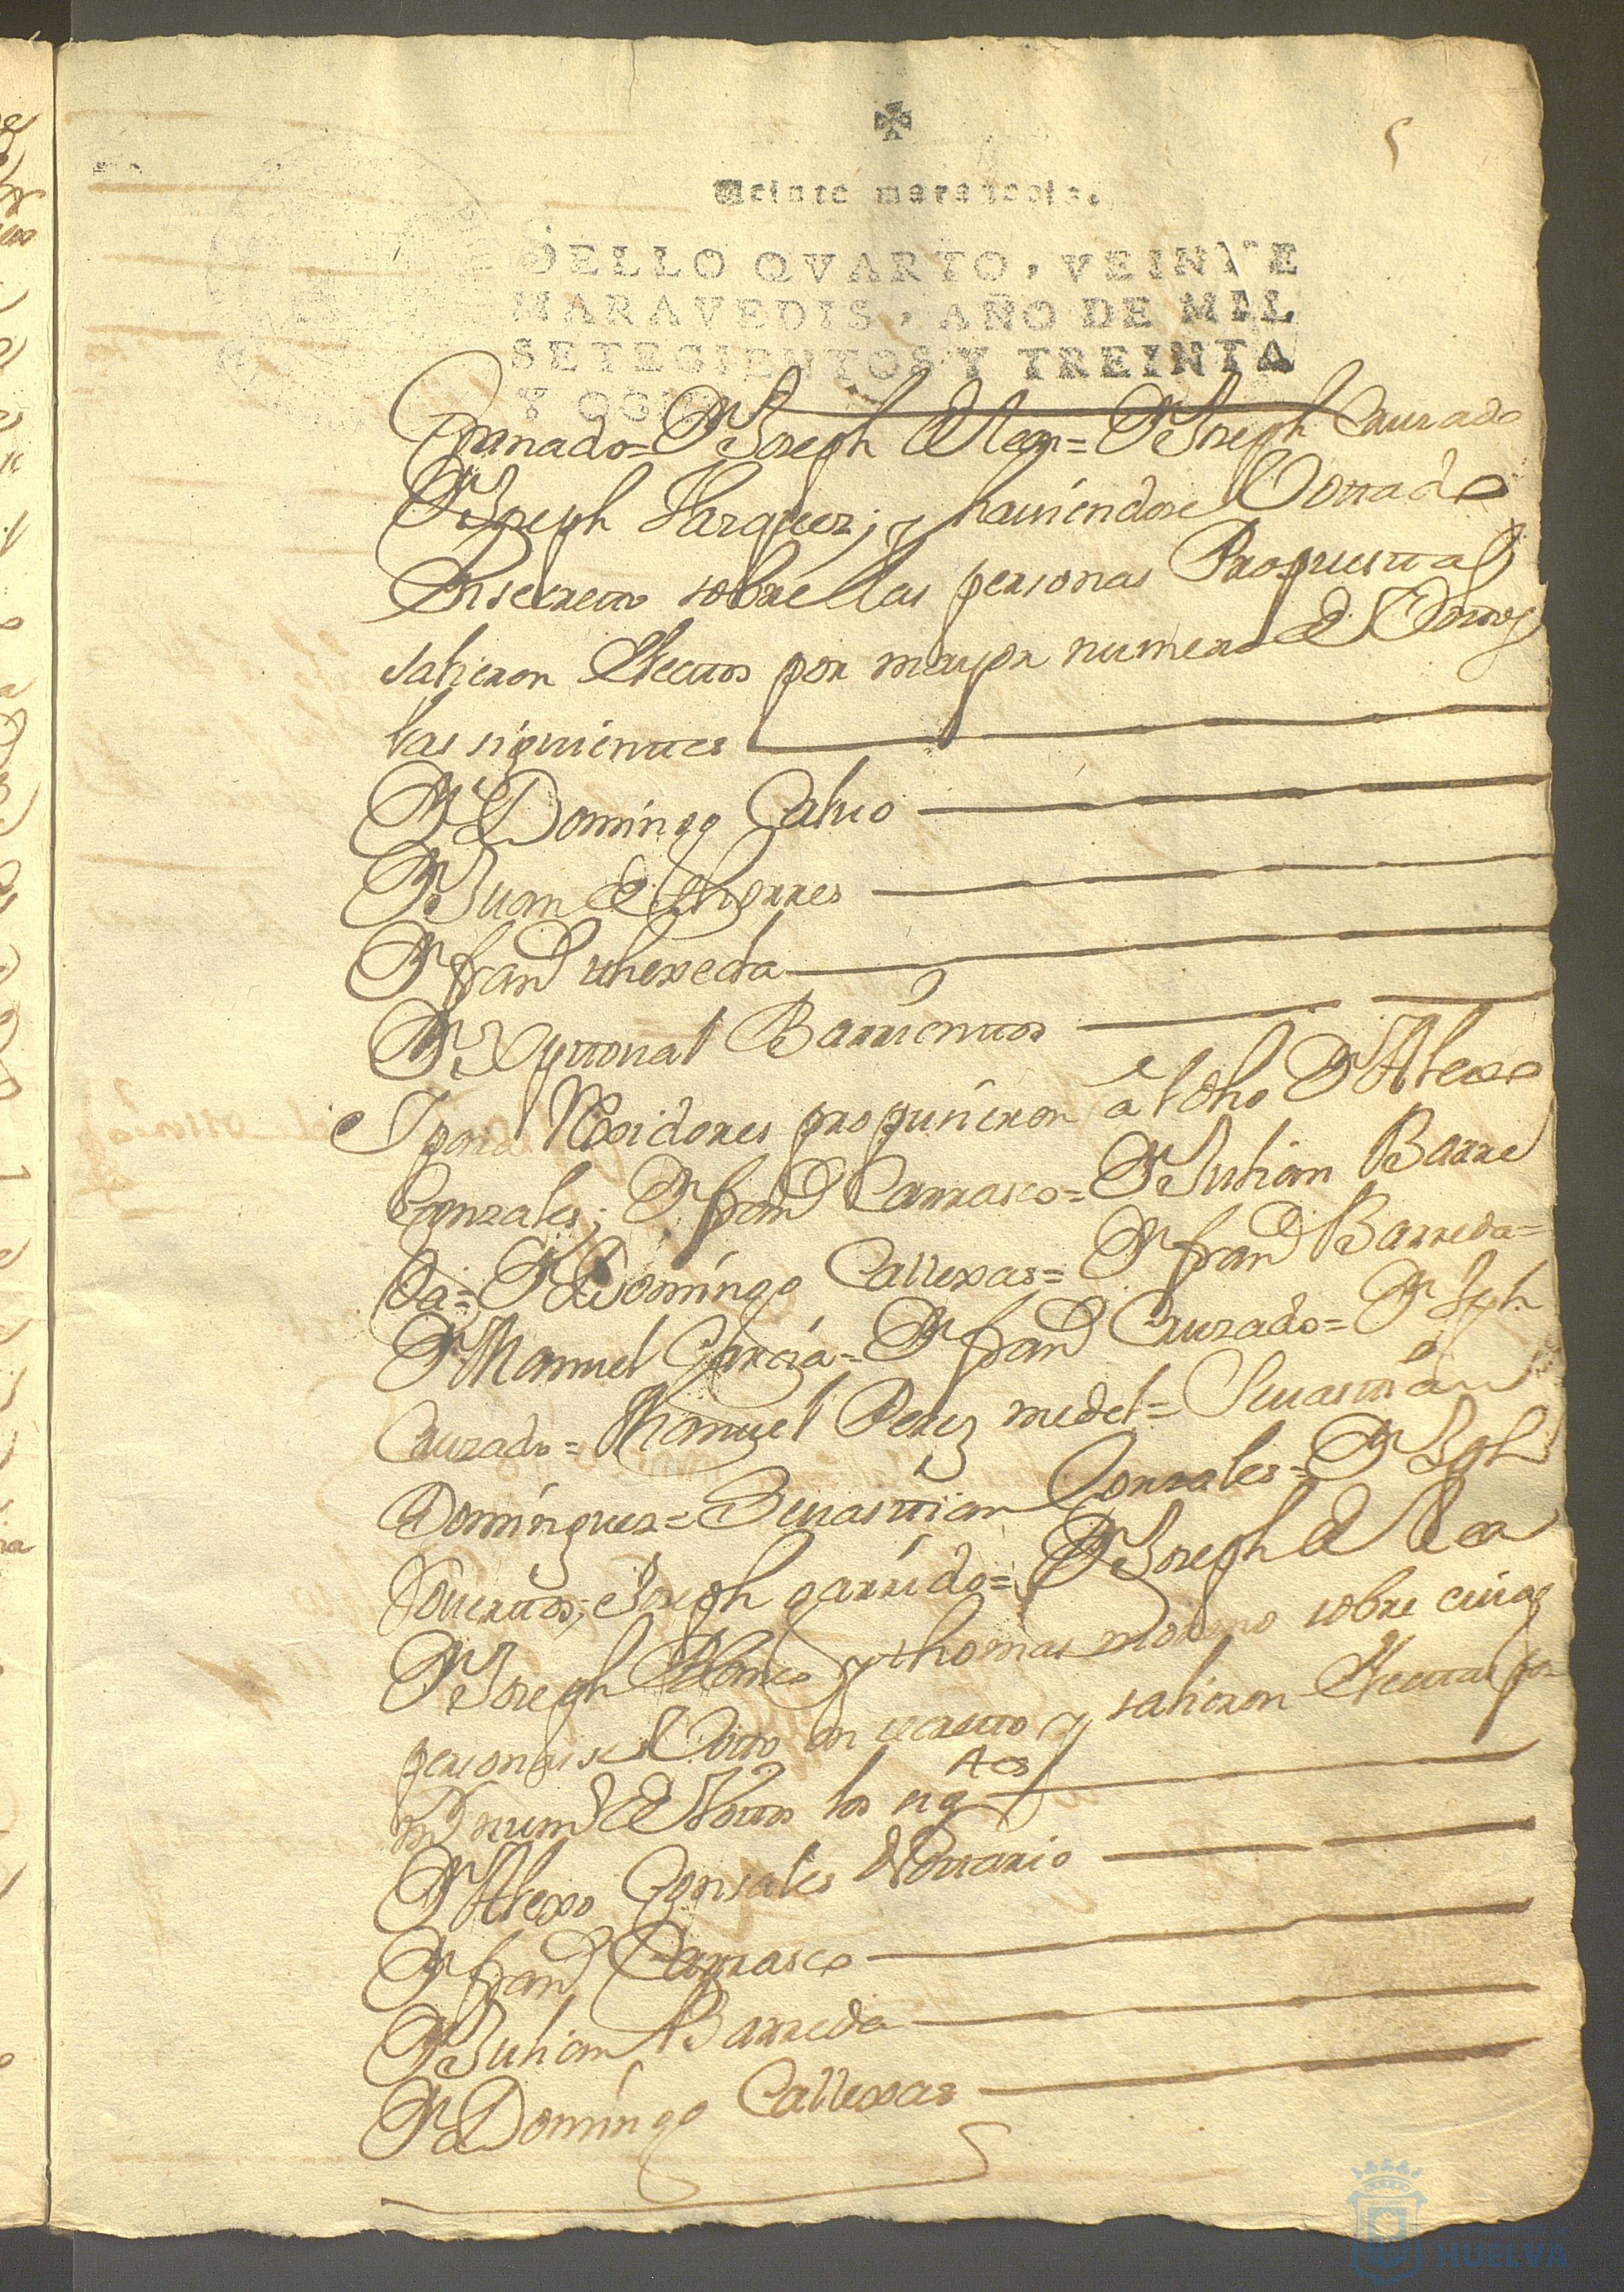 5
Veinte maravedis.
SELLO QVARTO, VEINTE
MARAVEDIS, AÑO DE MIL
SETECIENTOS Y TREINTA
Y OCHO
Granado = Dn Joseph de Leon = Dn Joseph Cruzado
Dn Joseph Vazquez; y haviendose Votado
En secreto sobre las personas Propuestas
salieron Electos por mayor numero de Votos
los siguientes
Dn Domingo Calvo
Dn Juan de thorres
Dn franco
Dn Xptoval Barrientos
Y para Rexidores propusieron â el dho Dn Alexo
Gonzales; Dn franco Carrasco = Dn Julian Barre
da = Dn Domingo Callexas = Dn franco Barreda =
Dn Manuel Garcia = Dn franco Cruzado = Dn Jph
Cruzado = Manuel Perez medel = Sevastian
Dominguez = Sevastian Gonzales = Dn Jph
Joseph garrido = Dn Joseph de Lea
Dn Joseph Blanco y thomas moreno sobre cuias
personas se Voto en secreto y salieron Electos por
mor numo de Votos los sigtes
Dn Alexo Gonsales Notario
Dn franco Carrasco
Dn Julian Barreda
Dn Domingo Callexas
HUELVA